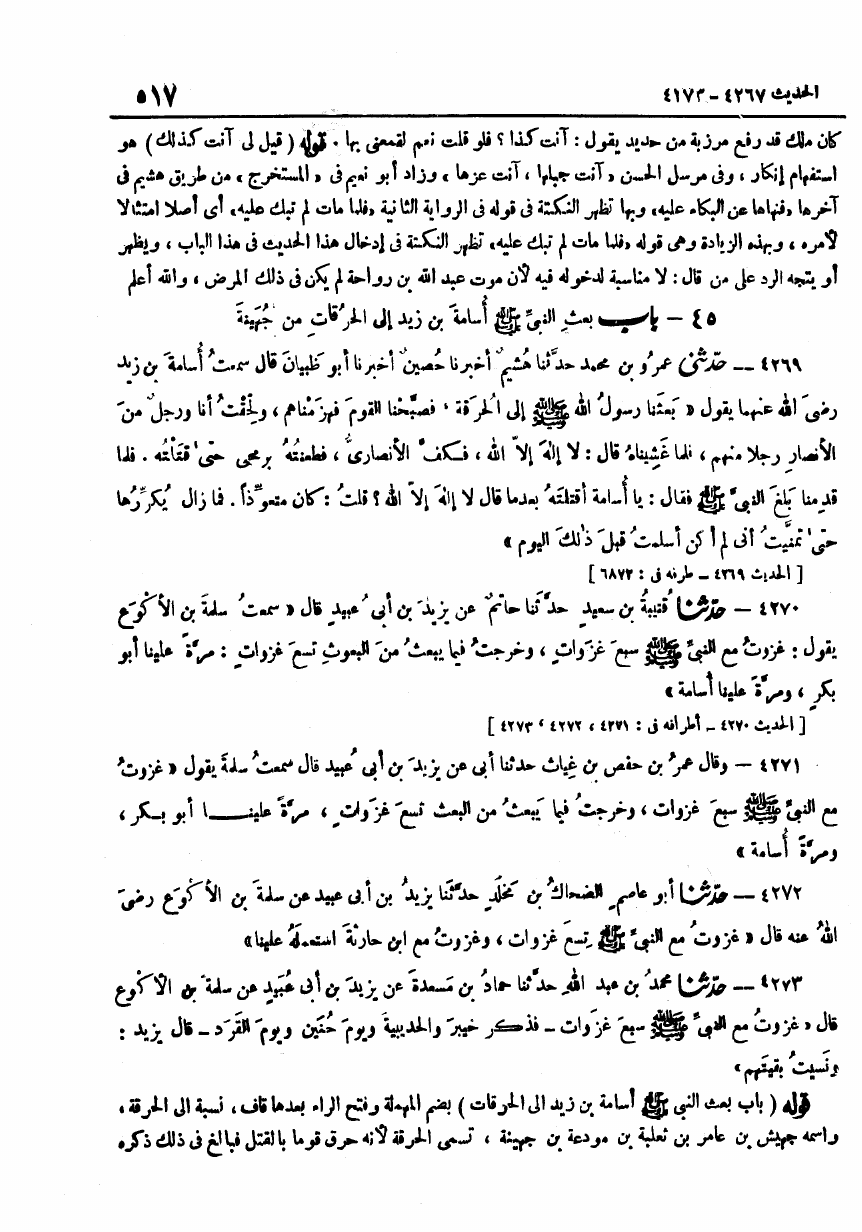 الحديث ٤٢٦٧ - ٤١٧٣
٥١٧
كان ملك قد رفع مرزبة من حديد يقول : آنت كذا ؟ فلو قلت نعم لقمعنى بها . قوله ( قيل لى آنت كذلك ) هو
استفهام إنكار ، وفى مرسل الحسن « آنت جبلها ، آنت عزها » وزاد أبو نعيم فى « المستخرج » من طريق هشيم فى
آخرها «فنهاها عن البكاء عليه» وبها تظهر النكتة فى قوله فى الرواية الثانية «فلما مات لم تبك عليه» أى أصلا امتثالا
لأمره ، وبهذه الزيادة وهى قوله «فلما مات لم تبك عليه» تظهر النكتة فى إدخال هذا الحديث فى هذا الباب ، ويظهر
أو يتجه الرد على من قال : لا مناسبة لدخوله فيه لأن موت عبد الله بن رواحة لم يكن فى ذلك المرض ، والله أعلم
٤٥ - باب بعثِ النبىِّ ﷺ أُسامةَ بن زيد إلى الحُرُقاتِ من جُهَينةَ
٤٢٦٩ - حدَّثنى عمرُو بن محمد حدَّثنا هُشيمٌ أخبرنا حُصينٌ أخبرنا أبو ظَبيانَ قال سمعتُ أُسامةَ بن زيد
رضىَ الله عنهما يقول « بَعثَنا رسولُ الله ﷺ إلى الحُرَقة ، فصبَّحْنا القومَ فهزَمْناهم ، ولحِقْتُ أنا ورجلٌ منَ
الأنصارِ رجلا منهم ، فلما غَشِيناهُ قال : لا إلهَ إلاّ الله ، فكفَّ الأنصارىُّ ، فطعنتُهُ برمحى حتىٰ قتَلْتُه . فلما
قدِمنا بَلغَ النبىَّ ﷺ فقال : يا أُسامة أقتلتَهُ بعدما قال لا إلهَ إلاّ الله ؟ قلتُ : كان متعوِّذاً . فما زال يُكرِّرُها
حتىٰ تمنَّيتُ أنى لم أكن أسلمتُ قبلَ ذٰلكَ اليوم »
[ الحديث ٤٢٦٩ - طرفه فى : ٦٨٧٢ ]
٤٢٧٠ - حدَّثنا قُتيبةُ بن سعيدٍ حدَّثنا حاتمٌ عن يزيدَ بن أبى عُبيدٍ قال « سمعتُ سلمةَ بن الأكْوَع
يقول : غزوتُ مع النبىِّ ﷺ سبعَ غزَواتٍ ، وخرجتُ فيما يبعثُ منَ البعوثِ تسعَ غزواتٍ : مرَّةً علينا أبو
بكرٍ ، ومرَّةً علينا أُسامة »
[ الحديث ٤٢٧٠ - أطرافه فى : ٤٢٧١ ، ٤٢٧٢ ، ٤٢٧٣ ]
٤٢٧١ - وقال عمرُ بن حفص بن غِياث حدثنا أبى عن يزيدَ بن أبى عُبيد قال سمعتُ سلمةَ يقول « غزوتُ
مع النبىِّ ﷺ سبعَ غزوات ، وخرجتُ فيما يَبعثُ من البعث تسعَ غزَواتٍ ، مرَّةً علينا أبو بكر ،
ومرَّةً أُسامة »
٤٢٧٢ - حدَّثنا أبو عاصمٍ الضحاكُ بن مَخلَدٍ حدَّثنا يزيدُ بن أبى عبيد عن سلمةَ بن الأكْوَع رضىَ
اللهُ عنه قال « غزوتُ مع النبىِّ ﷺ تِسعَ غزوات ، وغزوتُ مع ابن حارثةَ استعملَهُ علينا»
٤٢٧٣ - حدَّثنا محمدُ بن عبد اللهِ حدَّثنا حمادُ بن مَسعدةَ عن يزيدَ بن أبى عُبَيدٍ عن سلمةَ بن الأكْوع
قال « غزوتُ مع النبىِّ ﷺ سبعَ غزَوات - فذكر خيبرَ والحديبيةَ ويومَ حُنَين ويومَ القَرَد - قال يزيد :
ونَسيتُ بقيتَهم»
قوله ( باب بعث النبى ﷺ أسامة بن زيد الى الحرقات ) بضم المهملة وفتح الراء بعدها قاف ، نسبة الى الحرقة ،
واسمه جهيش بن عامر بن ثعلبة بن مودعة بن جهينة ، تسمى الحرقة لأنه حرق قوما بالقتل فبالغ فى ذلك ذكره